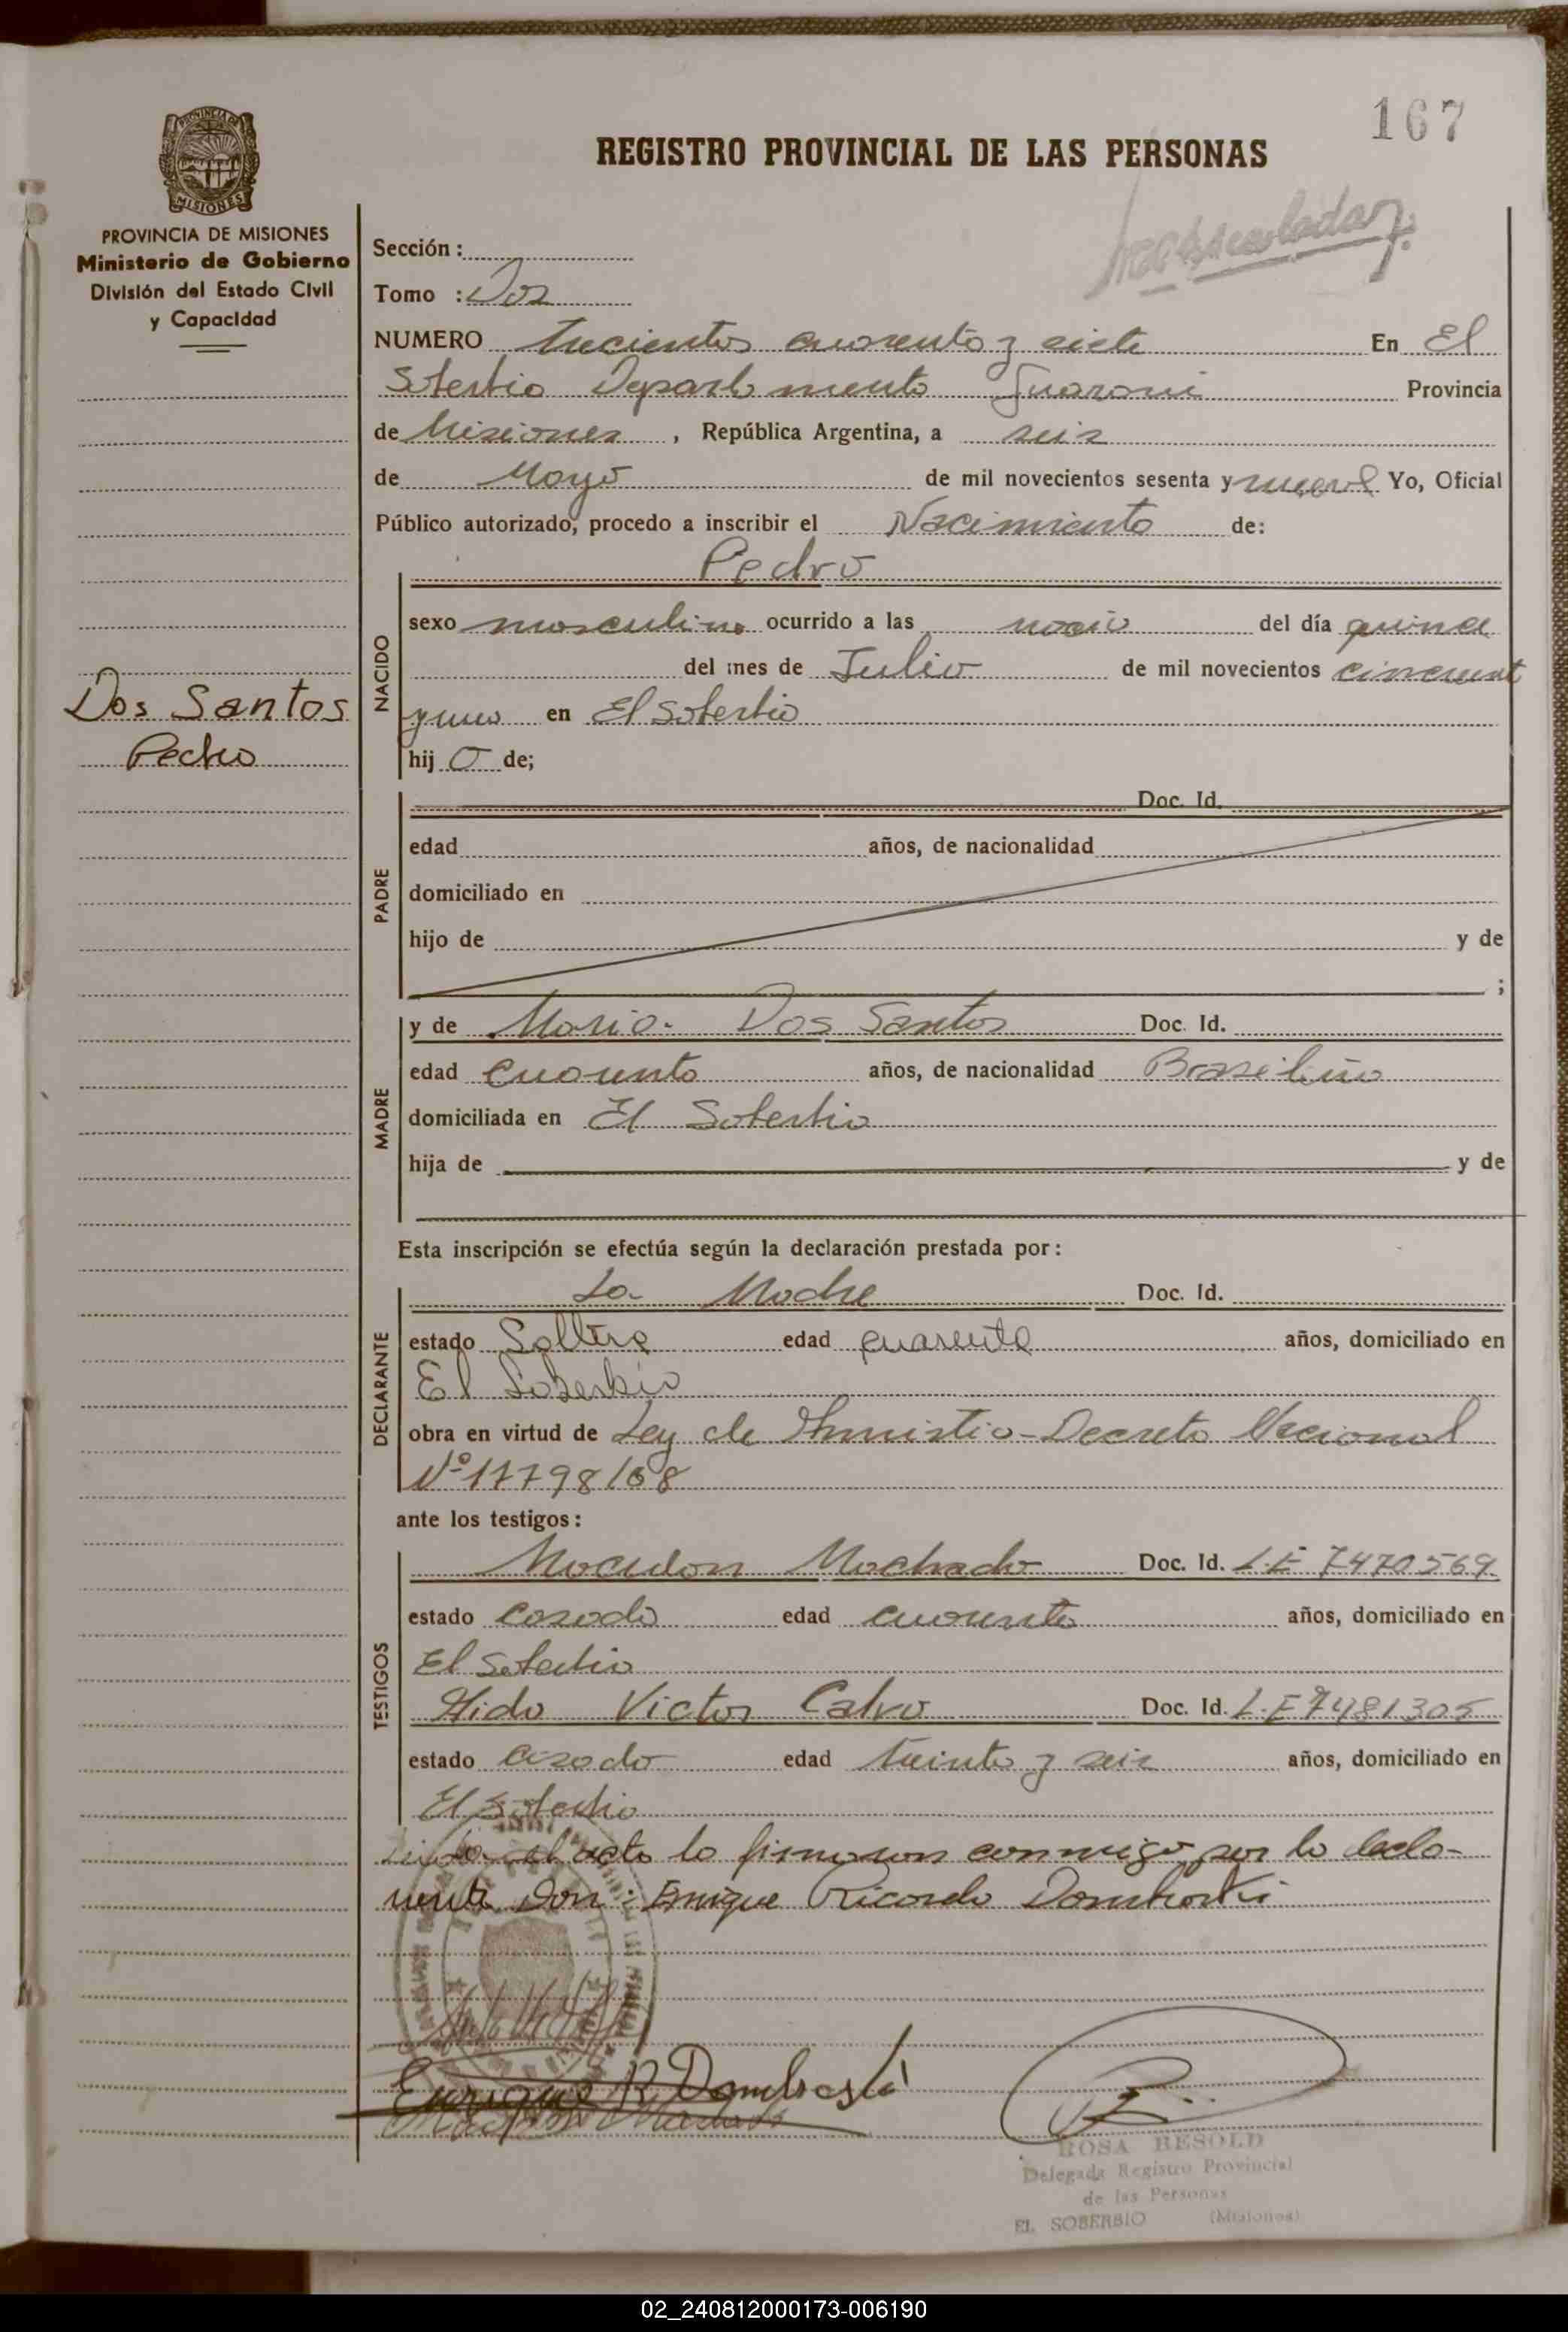 167
REGISTRO PROVINCIAL DE LAS PERSONAS
PROVINCIA DE
MISIONES
PROVINCIA DE MISIONES
Ministerio de Gobierno
División del Estado Civil
y Capacidad
Dos Santos
Pedro
Sección :
Tomo : Dos
NUMERO Trecientos cuarenta y siete En El
Soberbio Departamento Guarani Provincia
de Misiones , República Argentina, a seis
de Mayo de mil novecientos sesenta y nueve Yo, Oficial
Público autorizado, procedo a inscribir el Nacimiento de:
NACIDO
Pedro
sexo masculino ocurrido a las del día quince
del mes de Julio de mil novecientos cincuent
y uno en El Soberbio
hij o de;
PADRE
Doc. Id.
edad años, de nacionalidad
domiciliado en
hijo de y de
;
MADRE
y de Maria Dos Santos Doc. Id.
edad cuarenta años, de nacionalidad Brasileña
domiciliada en El Soberbio
hija de y de
Esta inscripción se efectúa según la declaración prestada por :
DECLARANTE
La Madre Doc. Id.
estado Soltera edad cuarenta años, domiciliado en
El Soberbio
obra en virtud de Ley de Amnistia - Decreto Nacional
Nº 17798/68
ante los testigos :
TESTIGOS
Machado Doc. Id. L.E 7470569
estado Casado edad cuarenta años, domiciliado en
El Soberbio
Victor Calvo Doc. Id. L.E 7481305
estado Casado edad treinta y seis años, domiciliado en
El Soberbio
el acta la firmaron conmigo por la decla-
rante Don: Enrique Ricardo Domborski
Enrique R. Dombroski
ROSA BESOLD
Delegada Registro Provincial
de las Personas
EL SOBERBIO (Misiones)
02_240812000173-006190